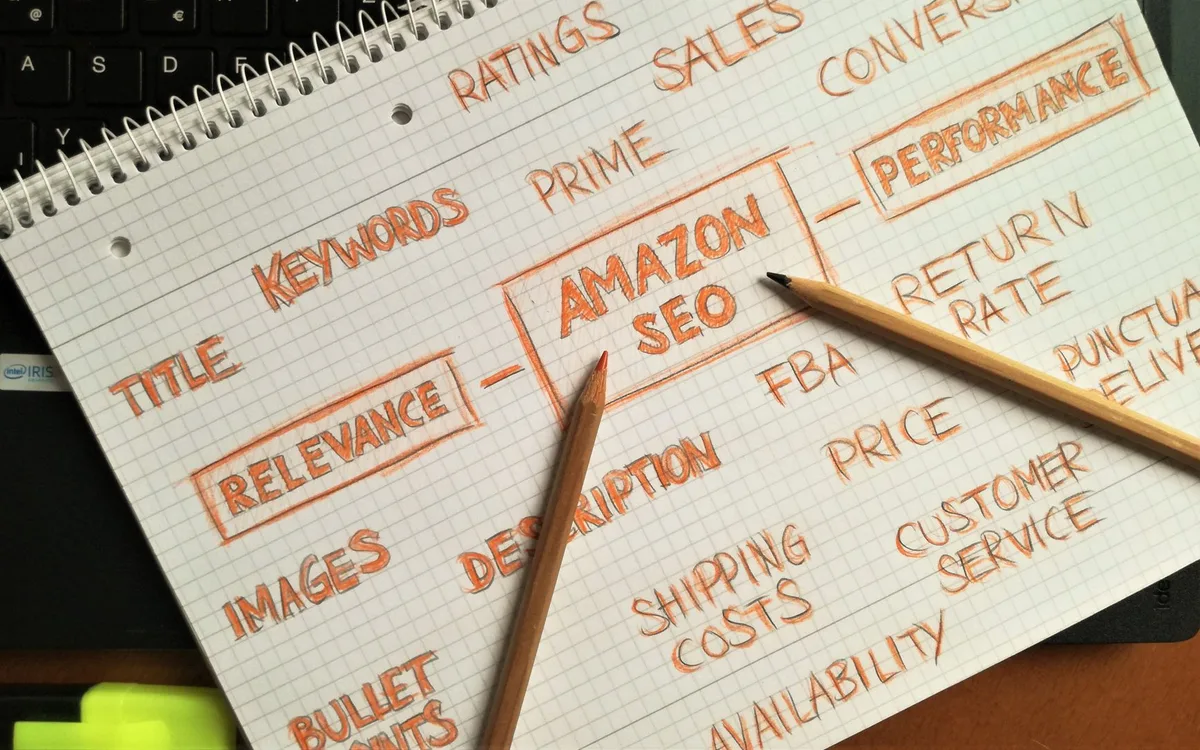 RATINGS
SALES
CONVERS
PRIME
KEYWORDS
PERFORMANCE
AMAZON
SEO
TITLE
RELEVANCE
RETURN
RATE
FBA
PUNCTUA
ELIVE
DESCRIPTION
PRICE
IMAGES
SHIPPING
COSTS
CUSTOMER
SERVICE
BULLET
INTS
AVAILABILITY
intel IRIS
A S D F
Y
@
€